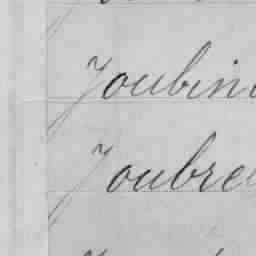 Joubin
Joubre